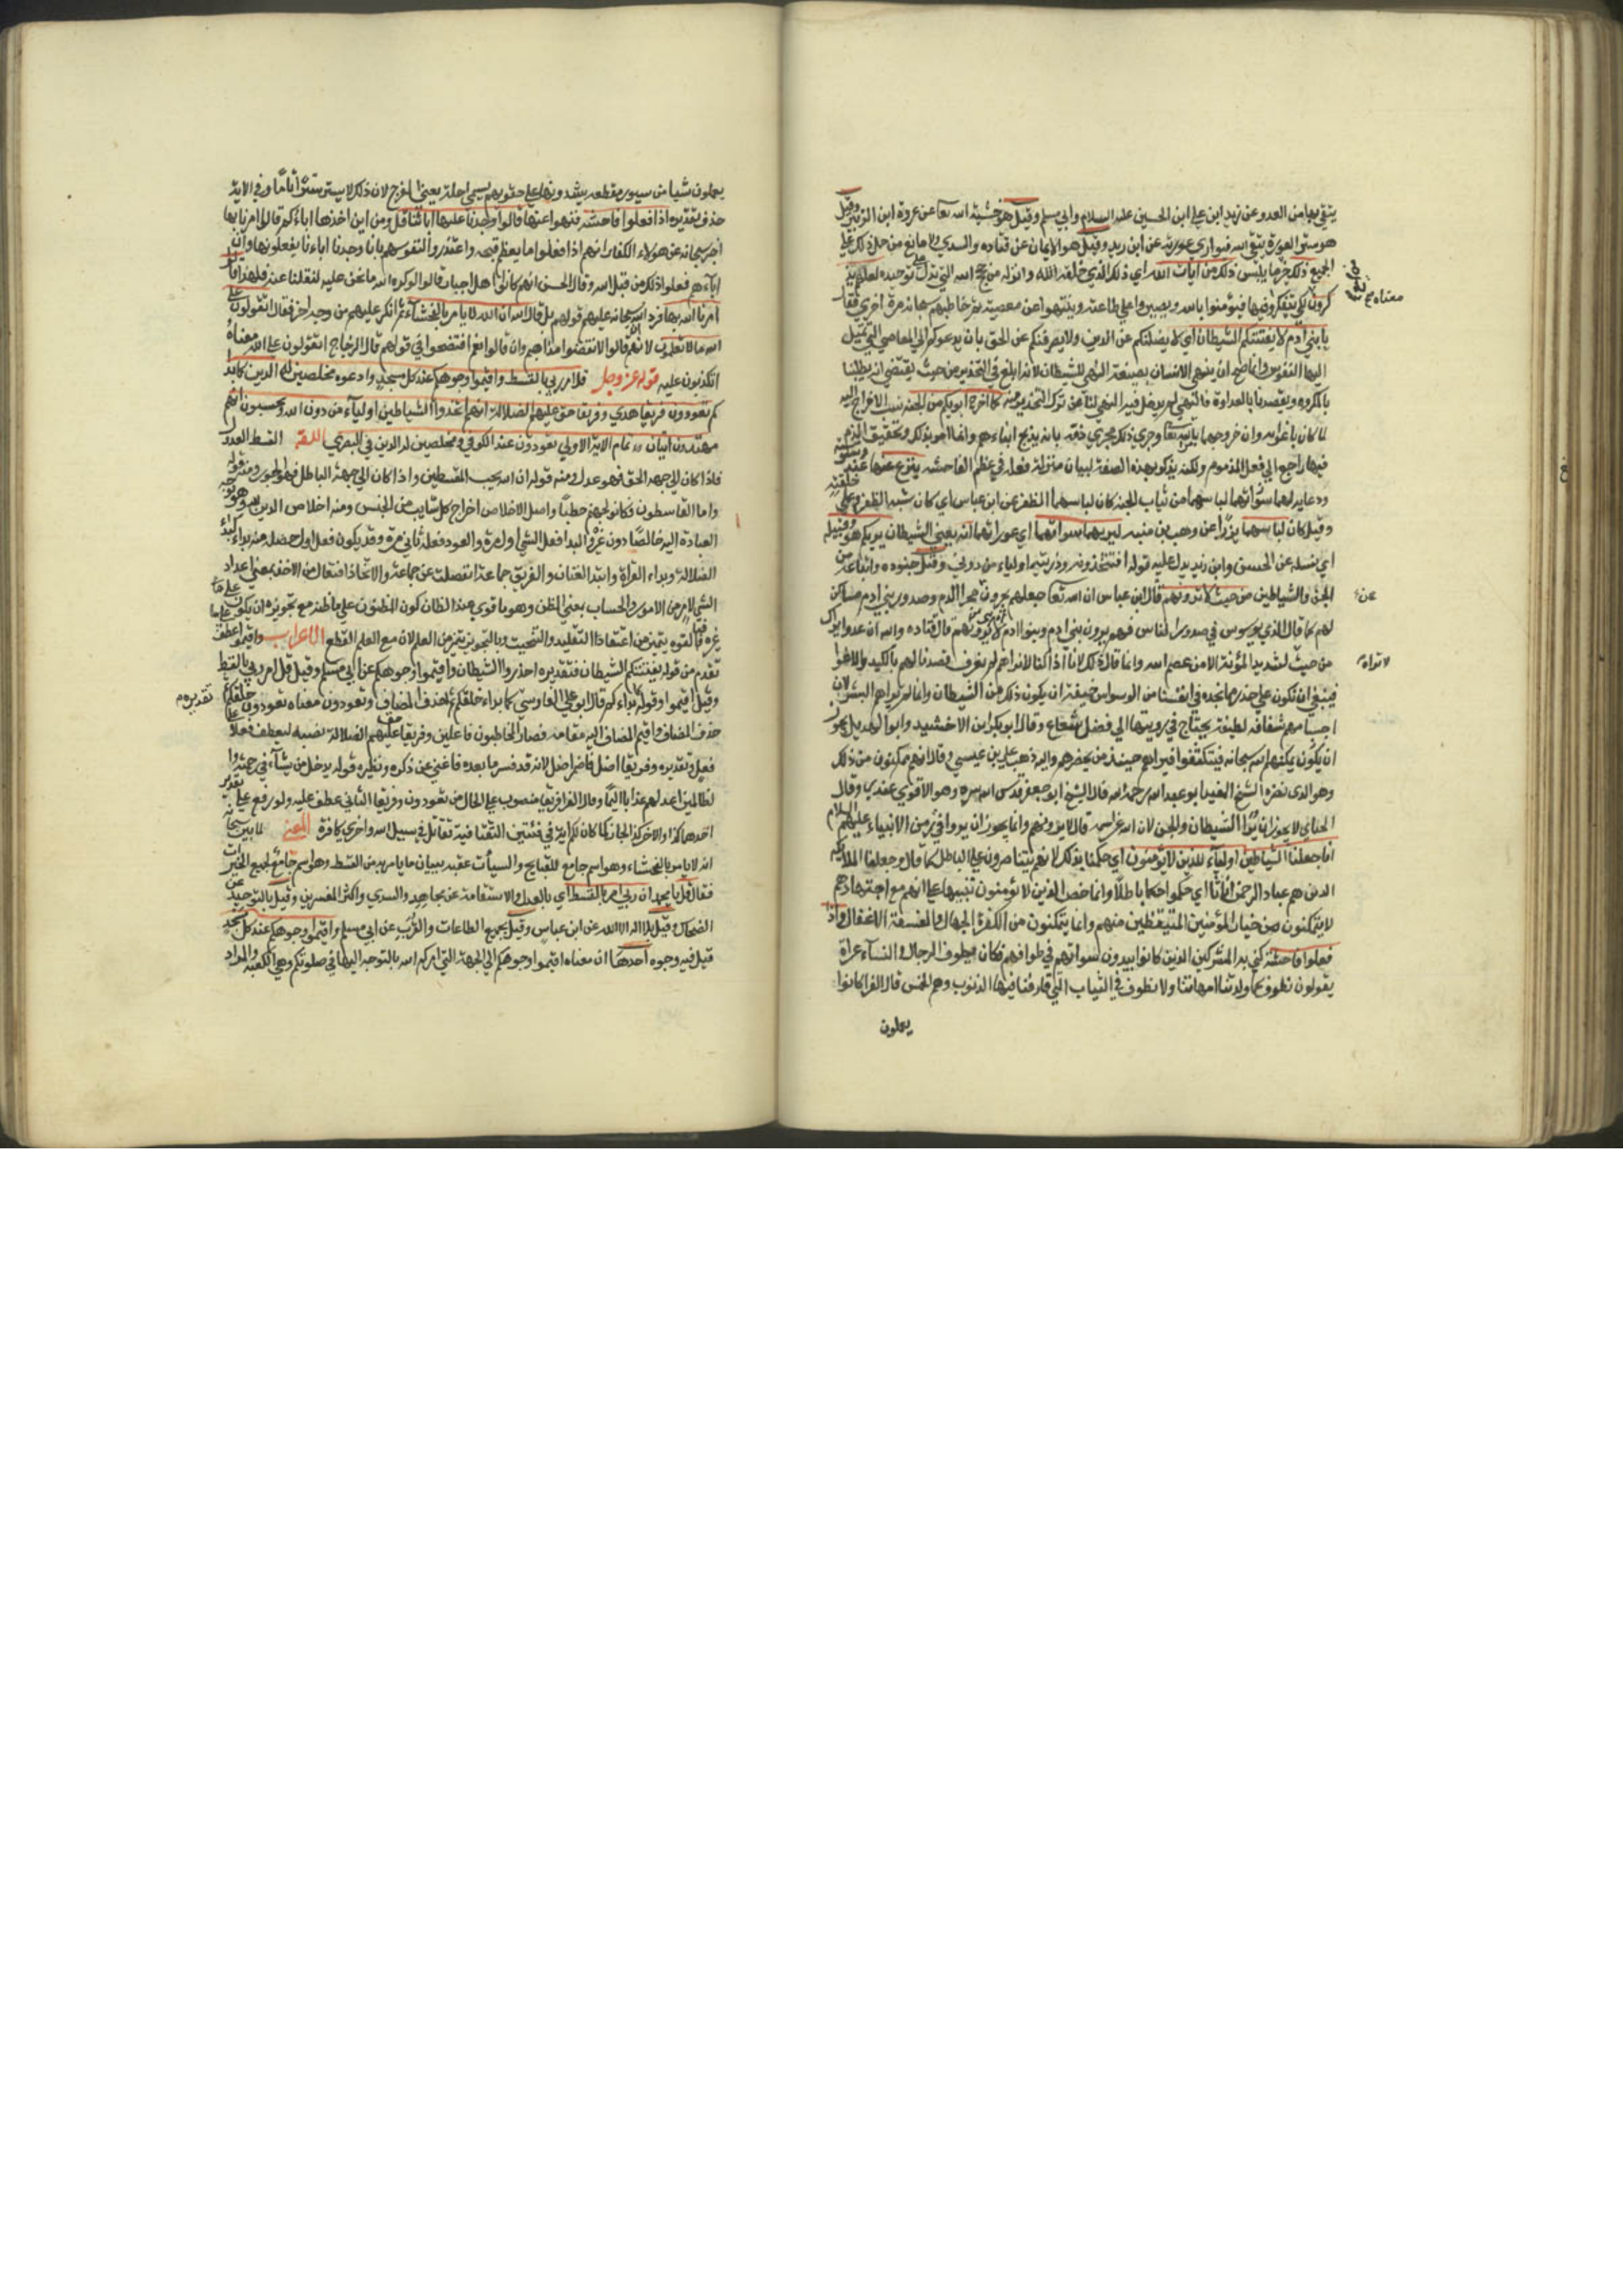 يتقي بها من العدو عن زيد ابن علي ابن الحسين عليه السلام وابي مسلم وقيل هو خشية الله تعا عن عروة ابن الزبير وقيل
هو ستر العورة يتقي الله فيواري عورته عن ابن زيد وقيل هو الايمان عن قتاده والسدي ولا مانع من حمل ذلك علي
الجميع ذلك خير ما يلبس ذلك من آيات الله اي ذلك الذي خلقه الله وانزله من حجج الله التي تدل علي توحيده لعلهم يذ
كرون لكي يتفكروا فيها فيؤمنوا بالله ويصيروا علي طاعته وينتهوا عن معصيته ثم خاطبهم سبحانه مرة اخري فقال
يا بني آدم لا يفتننكم الشيطان اي لا يضلنكم عن الدين ولا يصرفنكم عن الحق بان يدعوكم الي المعاصي التي تميل
اليها النفوس وانما صح ان ينهي الانسان بصيغة النهي للشيطان لانه ابلغ في التحذير من حيث يقتضي انه يطلبنا
بالمكروه ويقصدنا بالعداوة فالنهي له يدخل فيه النهي لنا عن ترك التحذير منه كما اخرج ابويكم من الجنة نسب الاخراج اليه
لما كان باغوائه وان خروجهما بامر الله تعا وجري ذلك مجري ذمه بانه يذبح ابناءهم وانما امر بذلك وتحقيق الذم
فيها راجع الي فعل المذموم ولكنه يذكر بهذه الصفة لبيان منزلة فعله في عظم الفاحشة ينزع عنهما عند وسوسته
ودعائه لهما لباسهما من ثياب الجنة كان لباسهما الظفر عن ابن عباس اي كان شبه الظفر وعلي خلقته
وقيل كان لباسهما نورا عن وهب بن منبه ليريهما سوآتهما اي عوراتهما انه يعني الشيطان يريكم هو وقبيله
اي نسله عن الحسن وابن زيد يدل عليه قوله افتتخذونه وذريته اولياء من دوني وقيل جنوده واتباعه من
الجن والشياطين من حيث لا ترونهم قال ابن عباس ان الله تعا جعلهم يجرون مجرا الدم وصدور بني ادم مساكن
لهم كما قال الذي يوسوس في صدور الناس فهم يرون بني ادم وبنوا ادم لا يرونهم قال قتاده والله ان عدوا يراك
من حيث لشديد المؤنة الا من عصم الله وانما قال ذلك لانا اذا كنا لا نراهم لم نعرف قصدنا لهم بالكيد والاغوا
فينبغي ان نكون علي حذر مما نجده في انفسنا من الوسواس خيفة ان يكون ذلك من الشيطان وانما لم يراهم البشر لان
اجسامهم شفافه لطيفة يحتاج في رؤيتها الي فضل شعاع وقال ابو بكر ابن الاخشيد وابوا الهذيل يجوز
ان يكون يمكنهم الله سبحانه فيتكثفوا فيراهم حينئذ من يحضرهم واليه ذهب علي بن عيسي وقال انهم ممكنون من ذلك
وهو الذي نصره الشيخ المفيد ابو عبد الله رحمه الله قال الشيخ ابو جعفر قدس الله سره وهو الاقوي عندي وقال
الجبائي لا يجوز ان يرا الشيطان والجن لان الله عز اسمه قال لا ترونهم وانما يجوز ان يروا في زمن الانبياء عليهم السلام
انا جعلنا الشياطين اولياء للذين لا يؤمنون اي حكمنا بذلك لانهم يتناصرون علي الباطل كما قال وجعلوا الملائكة
الذين هم عباد الرحمن اناثا اي حكموا حكما باطلا وانما خص الذين لا يؤمنون تنبيها علي انهم مع اجتهادهم
لا يتمكنون من خيار المؤمنين المتيقظين منهم وانما يتمكنون من الكفرة الجهال والفسقة الاغفال واذا
فعلوا فاحشة كني به المشركين الذين كانوا يبدون سوآتهم في طوافهم فكان يطوف الرجال والنساء عراة
يقولون نطوف كما ولدتنا امهاتنا ولا نطوف في الثياب التي قارفنا فيها الذنوب وهم الحمس قال الفرا كانوا
يعملون
معناه
عن
لا تراه
يعملون شيا من سيور مقطعه يشدونها علي حقويهم يسمي احلة يعني الفرج لان ذلك لا يستر سترا تاما وفي الاية
حذف تقديره اذا فعلوا فاحشة فنهوا عنها قالوا وجدنا عليها آبائنا قيل ومن اين اخذها اباءكم قالوا امرنا بها
اخبر سبحانه عن هؤلاء الكفار انهم اذا فعلوا ما يعظم قبحه واعتذروا لنفوسهم بانا وجدنا اباءنا يفعلونها وان
اباءهم فعلوا ذلك من قبل الله وقال الحسن انهم كانوا اهل اجبار قالوا لو كره الله ما نحن عليه لنقلنا عنه فلهذا قالوا
امرنا الله بها فرد الله سبحانه عليهم قولهم بل قال الله ان الله لا يامر بالفحشاء ثم انكر عليهم من وجه اخر فقال اتقولون علي
الله ما لا تعلمون لانهم ان قالوا لا لنقضوا مذاهبهم وان قالوا نعم افتضحوا في قولهم قال الزجاج اتقولون علي الله معناه
اتكذبون عليه قوله عز وجل قل امر ربي بالقسط واقيموا وجوهكم عند كل مسجد وادعوه مخلصين له الدين كما بدا
كم تعودون فريقا هدي وفريقا حق عليهم الضلالة انهم اتخذوا الشياطين اولياء من دون الله ويحسبون انهم
مهتدون ايتان تمام الاية الاولي تعودون عند الكوفي ومخلصين له الدين في البصري اللغة القسط العدل
فاذا كان الي جهة الحق فهو عدل ومنه قوله ان الله يحب المقسطين واذا كان الي جهة الباطل فهو الجور ومنه قوله
واما القاسطون فكانوا لجهنم حطبا واصل الاخلاص اخراج كل شايب من الجنس ومنه اخلاص الدين لله وهو توجيه
العبادة اليه خالصا دون غيره البدا فعل الشي اول مرة والعود فعله ثاني مرة وقد يكون فعل اول خصله منه بداء كبداء
الصلاة وبداء القراة وابتدا الفتيان والفريق جماعة انفصلت عن جماعة والاتخاذ افتعال من الاخذ بمعني اعداد
الشي لامر من الامور والحساب بمعني الظن وهو ما قوي عند الظان كون المظنون علي ما ظنه مع تجويزه ان يكون علي
غيره فبالقوه يتميز من اعتقاد التقليد والتبخيت وبالتجويز يتميز من العلم لان مع العلم القطع الاعراب واقيموا عطف علي ما
تقدم من قوله لا يفتننكم الشيطان فتقديره احذروا الشيطان واقيموا وجوهكم عن ابي مسلم وقيل قل امر ربي بالقسط
وقيل اقيموا وقوله كما بداءكم قال ابو علي الفارسي كما بداء خلقكم ثم حذف المضاف وتعودون معناه تعود خلقكم
حذف المضاف واقيم المضاف اليه مقامه فصار المخاطبون فاعلين وفريقا حق عليهم الضلالة نصبه ليعطف فعلا علي
فعل وتقديره وفريقا اضل فاضمر اضل لانه قد فسره ما بعده فاغني عن ذكره ونظيره قوله يدخل من يشاء في رحمته وا
لظالمين اعد لهم عذابا اليما وقال الفرا فريقا منصوب علي الحال من تعودون وفريقا الثاني عطف عليه ولو رفع علي تقدير
احدهما كذا والاخر كذا لجاز كما كان لكم اية في فئتين التقتا فئة تقاتل في سبيل الله واخري كافرة المعني لما بين سبحانه
انه لا يامر بالفحشاء وهو اسم جامع للقبايح والسيآت عقبه ببيان ما يامر به من القسط وهو اسم جامع لجميع الخيرات
فقال قل يا محمد ان ربي امر بالقسط اي بالعدل والاستقامة عن مجاهد والسدي واكثر المفسرين وقيل بالتوحيد عن
الضحاك وقيل بلا اله الا الله عن ابن عباس وقيل بجميع الطاعات والقرب عن ابي مسلم واقيموا وجوهكم عند كل مسجد
قيل فيه وجوه احدها ان معناه اقيموا وجوهكم الي الجهة التي امركم الله بالتوجه اليها في صلوتكم وهي الكعبة والمراد
تقديره